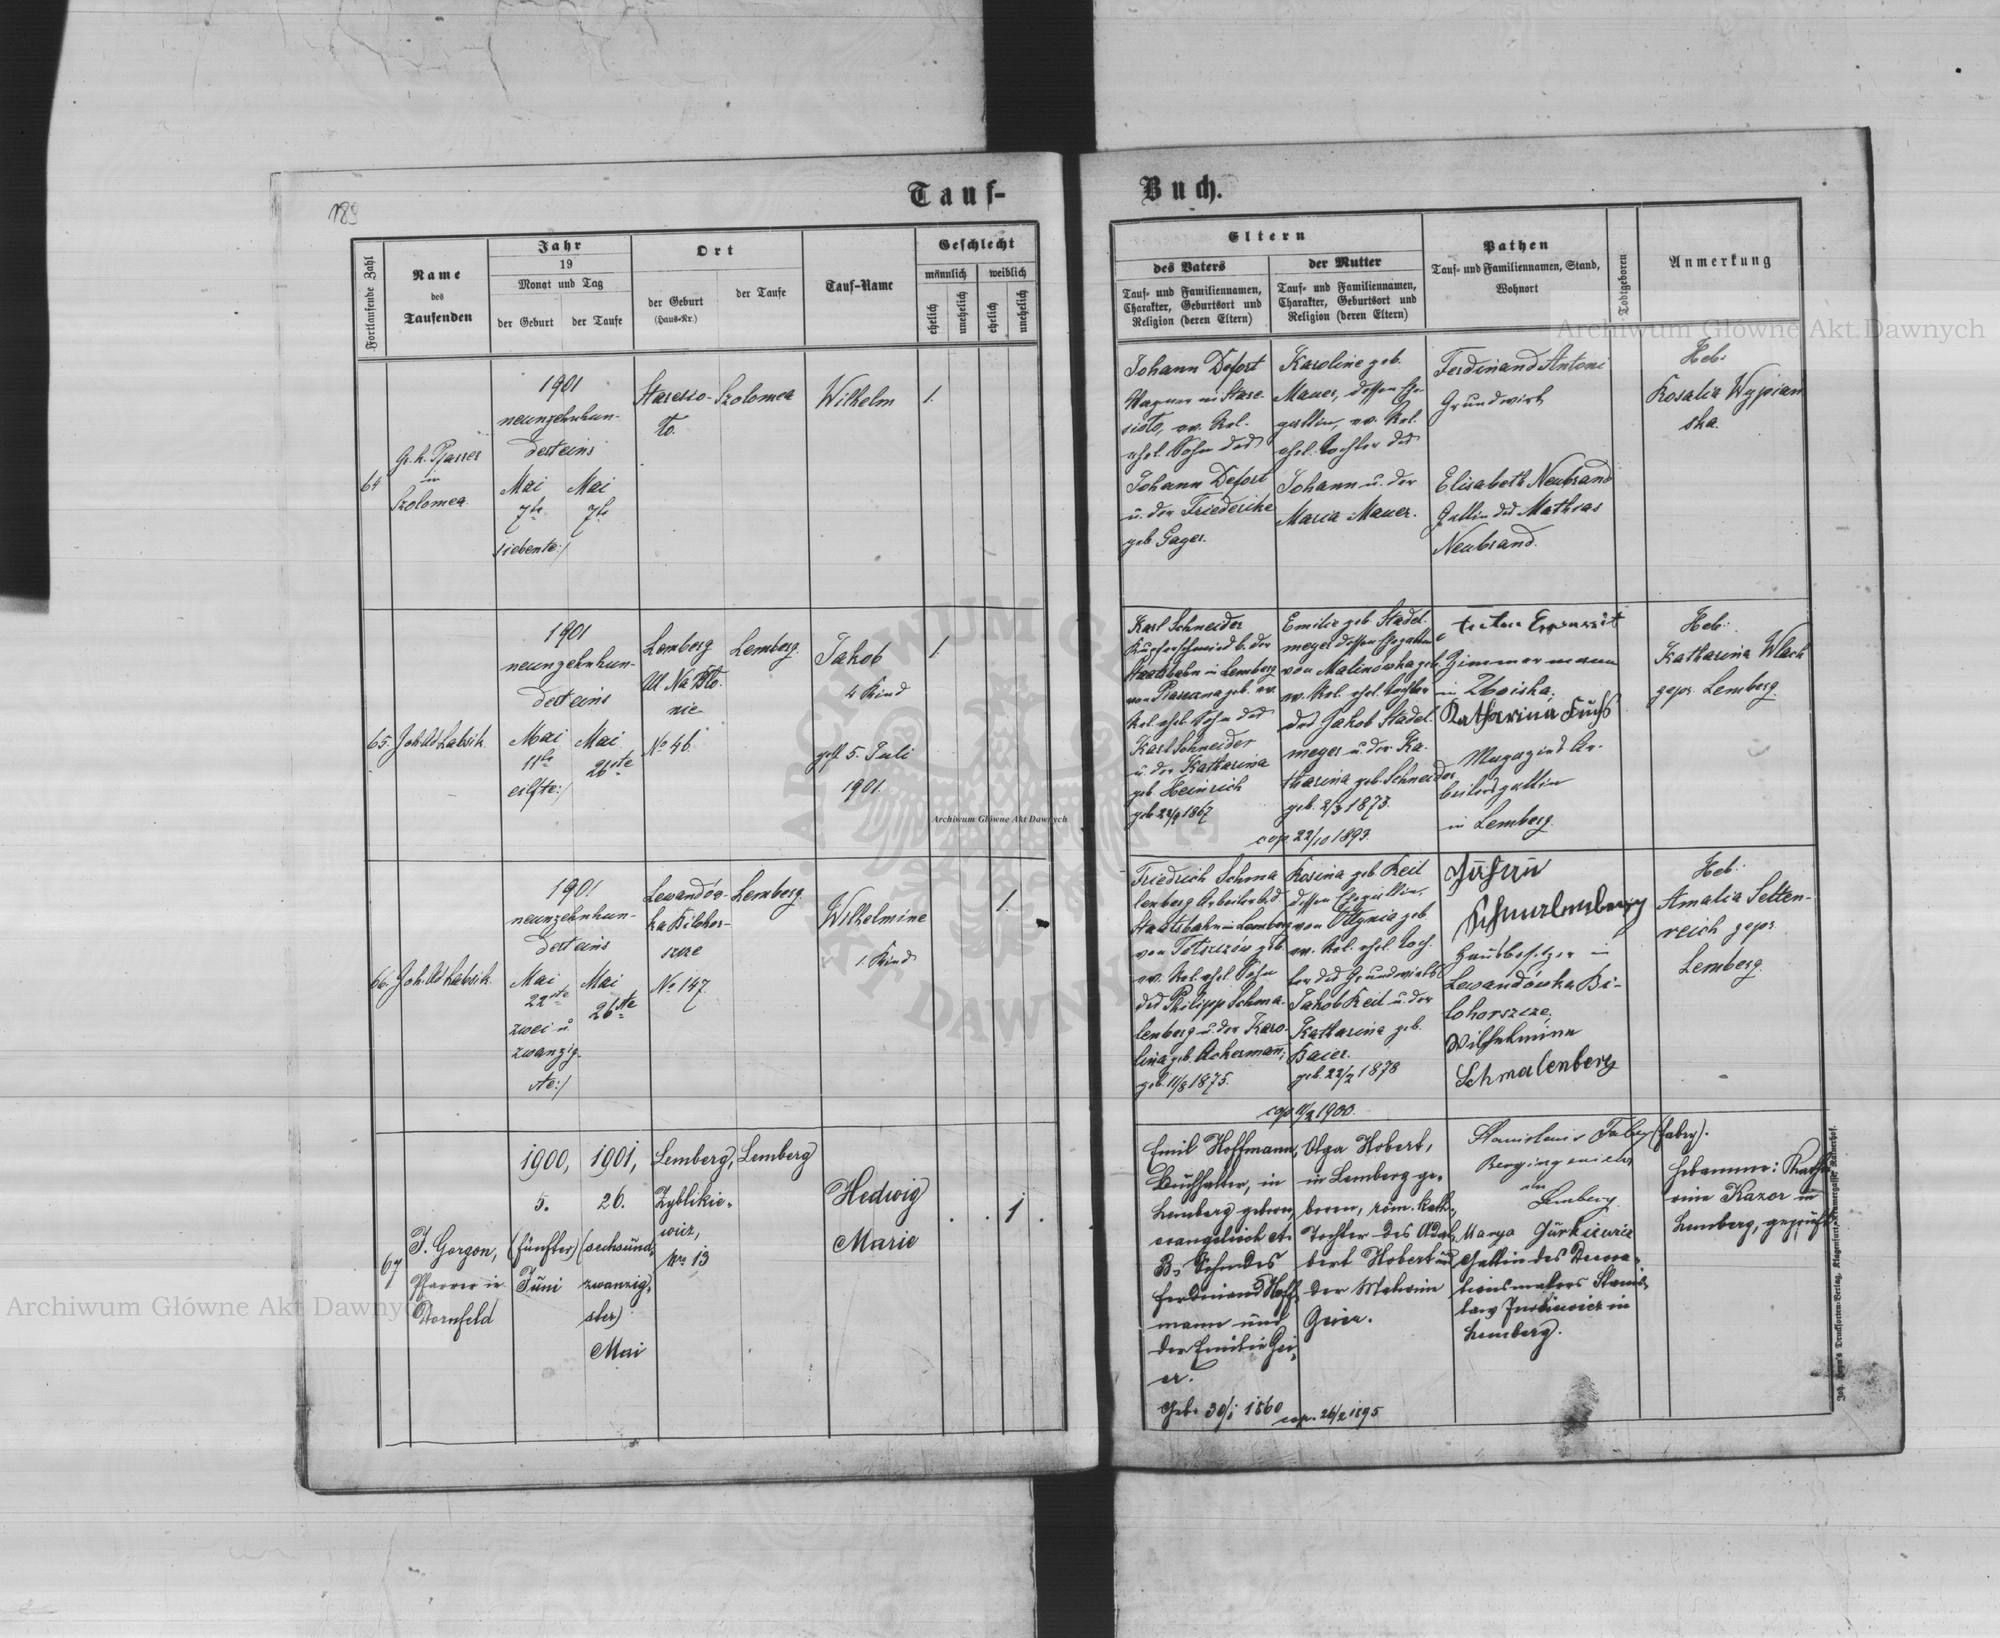 189
Tauf-
Buch.
Fortlaufende Zahl
Name
des
Taufenden
Jahr
19
Monat und Tag
der Geburt
der Taufe
Ort
der Geburt
(Haus-Nr.)
der Taufe
Tauf-Name
Geschlecht
männlich
weiblich
ehelich
unehelich
ehelich
unehelich
Eltern
des Vaters
Tauf- und Familiennamen,
Charakter, Geburtsort und
Religion (deren Eltern)
der Mutter
Tauf- und Familiennamen,
Charakter, Geburtsort und
Religion (deren Eltern)
Pathen
Tauf- und Familiennamen, Stand,
Wohnort
Todtgeboren
Anmerkung
64
Gr. k. Pfarrer
in
Szolomea
1901
neunzehnhun-
derteins
Mai
7te
siebente:/
Mai
7te
Staresio-
to.
Szolomea
Wilhelm
1.
Johann Defort
Wagner in Stare-
siolo, ev. Rel.
ehel. Sohn des
Johann Defort
u. der Friederike
geb. Gager.
Karoline geb.
Mauer, dessen Ehe-
gattin, ev. Rel.
ehel. Tochter des
Johann u. der
Maria Mauer.
Ferdinand Antoni
Grundwirt
Elisabeth Neubrand
Gattin des Mathias
Neubrand.
Heb.
Rosalia Wypian
ska.
65.
Joh. de Labsik
1901
neunzehnhun-
derteins
Mai
11te
eilfte:/
Mai
26ste
Lemberg
Ul. Na Bło-
nie
No 46
Lemberg.
Jakob
4 Kind
gest. 5. Juli
1901.
1.
Karl Schneider
Kupferschmied b. der
Staatsbahn in Lemberg
geb. ev.
Rel. ehel. Sohn des
Karl Schneider
u. der Katharina
geb. Heinrich
1867
Emilie geb. Stadel-
meyer dessen Ehegattin
von Malinówka geb.
ev. Rel. ehel. Tochter
des Jakob Stadel-
meyer u. der Ka-
tharina geb. Schneider
geb. 2/3 1873.
cop. 22/10 1893.
Zimmermann
in Zboiska.
Katharina Fuchs
Magazins Ar-
beitersgattin
in Lemberg.
Heb.
Katharina Wlach
gepr. Lemberg.
66.
Joh. de Labsik
1901
neunzehnhun-
derteins
Mai
22ste
zwei u.
zwanzig-
ste:/
Mai
26ste
Lewandów-
ka Bilohor-
szcze
No 147
Lemberg.
Wilhelmine
1. Kind
1.
Friedrich Schma
lenberg Arbeiter b. d.
Staatsbahn in Lemberg
von geb.
ev. Rel. ehel. Sohn
des Philipp Schma-
lenberg u. der Karo-
lina geb. Ackermann;
geb. 11/8 1875.
Rosina geb. Keil
dessen Ehegattin,
von Ottynia geb.
ev. Rel. ehel. Toch-
ter des Grundwirths
Jakob Keil u. der
Katharina geb.
Baier.
geb. 22/2 1878
1900.
Gustav
Schmalenberg
Hausbesitzer in
Lewandówka Bi-
lohorszcze,
Wilhelmine
Schmalenberg
Heb.
Amalia Setten-
reich gepr.
Lemberg.
67
J. Gorgon,
Pfarrer in
Dornfeld
1900,
5.
(fünfter)
Juni
1901,
26.
(sechsund-
zwanzig-
ster)
Mai
Lemberg,
Zyblikie-
wicz,
Nr. 13
Lemberg
Hedwig
Marie
1
Emil Hoffmann,
Buchhalter, in
Lemberg geboren,
evangelisch A.
B., Sohn des
Ferdinand Hoff-
mann und
der Emilie Gei-
er.
Geb. 30/1 1860
Olga Hobert,
in Lemberg ge-
boren, röm. kath.,
Tochter des Adal-
bert Hobert und
der Malwine
Geier.
cop. 26/2 1895
Stanislaus Fabry (Fabry).
Bergingenieur
in
Lemberg
Marya Jurkiewicz
Gattin des Decora-
tionsmalers Stanis-
law Jurkiewicz in
Lemberg).
Hebamme: Katha-
rina Kazor in
Lemberg, geprüft
Joh. Leon's Drucksorten-Verlag, Klagenfurt, Kramergasse Rainerhof.
Archiwum Główne Akt Dawnych
Archiwum Główne Akt Dawnych
Archiwum Główne Akt Dawnych